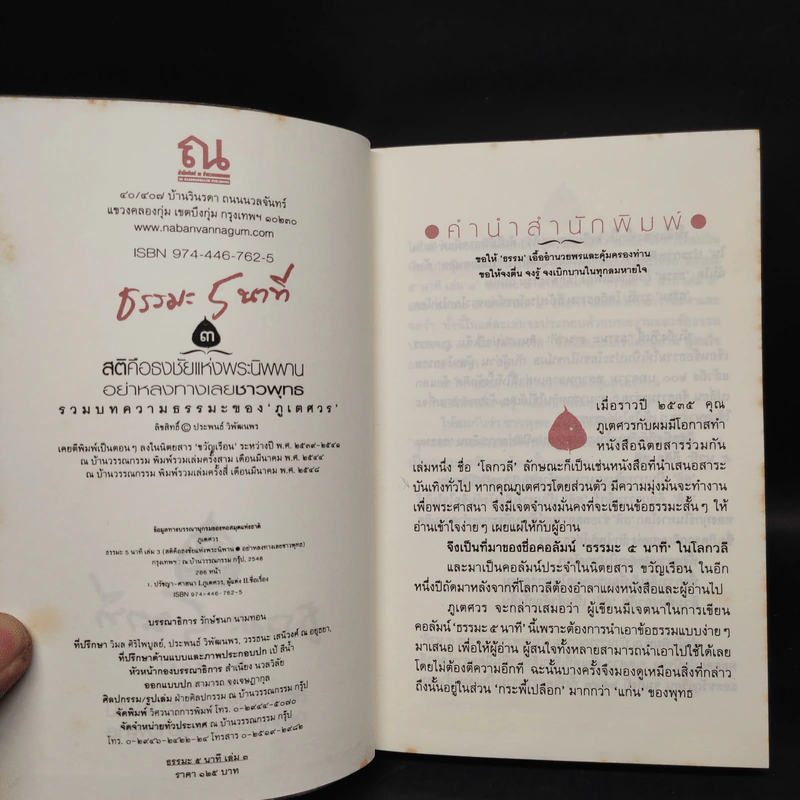 ณ
๔๐/๔๐๗ บ้านวินรดา ถนนนวลจันทร์
แขวงคลองกุ่ม เขตบึงกุ่ม กรุงเทพฯ ๑๐๒๓๐
www.nabanvannagum.com
ISBN 974-446-762-5
ธรรมะ ๕ นาที
๓
สติคือธงชัยแห่งพระนิพพาน
อย่าหลงทางเลยชาวพุทธ
รวมบทความธรรมะของ 'ภูเตศวร'
ลิขสิทธิ์ © ประพนธ์ วิพัฒนพร
เคยตีพิมพ์เป็นตอนๆ ลงในนิตยสาร 'ขวัญเรือน' ระหว่างปี พ.ศ. ๒๕๓๙-๒๕๔๑
ณ บ้านวรรณกรรม พิมพ์รวมเล่มครั้งสาม เดือนมีนาคม พ.ศ. ๒๕๔๔
ณ บ้านวรรณกรรม พิมพ์รวมเล่มครั้งสี่ เดือนมีนาคม พ.ศ. ๒๕๔๘
ข้อมูลทางบรรณานุกรมของหอสมุดแห่งชาติ
ภูเตศวร
ธรรมะ 5 นาที เล่ม 3 (สติคือธงชัยแห่งพระนิพพาน ● อย่าหลงทางเลยชาวพุทธ)
กรุงเทพฯ : ณ บ้านวรรณกรรม กรุ๊ป, 2548
286 หน้า
1. ปรัชญา-ศาสนา I.ภูเตศวร, ผู้แต่ง II.ชื่อเรื่อง
ISBN 974-446-762-5
บรรณาธิการ รักษ์ชนก นามทอน
ที่ปรึกษา วิมล ศิริไพบูลย์, ประพนธ์ วิพัฒนพร, วรรธนะ เสนีวงศ์ ณ อยุธยา,
ที่ปรึกษาด้านแบบและภาพประกอบปก เป้ สีน้ำ
หัวหน้ากองบรรณาธิการ สำเนียง นวลวิลัย
ออกแบบปก สามารถ จงเจษฎากุล
ศิลปกรรม/รูปเล่ม ฝ่ายศิลปกรรม ณ บ้านวรรณกรรม กรุ๊ป
จัดพิมพ์ วิศวนาถการพิมพ์ โทร. ๐-๒๙๔๔-๕๐๗๐
จัดจำหน่ายทั่วประเทศ ณ บ้านวรรณกรรม กรุ๊ป
โทร. ๐-๒๙๔๖-๒๔๒๒-๒๔ โทรสาร ๐-๒๕๑๙-๒๙๘๒
ธรรมะ ๕ นาที เล่ม ๓
ราคา ๑๒๕ บาท
● คำนำสำนักพิมพ์ ●
ขอให้ 'ธรรม' เอื้ออำนวยพรและคุ้มครองท่าน
ขอให้จงตื่น จงรู้ จงเบิกบานในทุกลมหายใจ
เมื่อราวปี ๒๕๓๕ คุณ
ภูเตศวรกับผมมีโอกาสทำ
หนังสือนิตยสารร่วมกัน
เล่มหนึ่ง ชื่อ 'โลกวลี' ลักษณะก็เป็นเช่นหนังสือที่นำเสนอสาระ
บันเทิงทั่วไป หากคุณภูเตศวรโดยส่วนตัว มีความมุ่งมั่นจะทำงาน
เพื่อพระศาสนา จึงมีเจตจำนงมั่นคงที่จะเขียนข้อธรรมะสั้นๆ ให้
อ่านเข้าใจง่ายๆ เผยแผ่ให้กับผู้อ่าน
จึงเป็นที่มาของชื่อคอลัมน์ 'ธรรมะ ๕ นาที' ในโลกวลี
และมาเป็นคอลัมน์ประจำในนิตยสาร ขวัญเรือน ในอีก
หนึ่งปีถัดมาหลังจากที่โลกวลีต้องอำลาแผงหนังสือและผู้อ่านไป
ภูเตศวร จะกล่าวเสมอว่า ผู้เขียนมีเจตนาในการเขียน
คอลัมน์ 'ธรรมะ ๕ นาที' นี้เพราะต้องการนำเอาข้อธรรมแบบง่ายๆ
มาเสนอ เพื่อให้ผู้อ่าน ผู้สนใจทั้งหลายสามารถนำเอาไปใช้ได้เลย
โดยไม่ต้องตีความอีกที ฉะนั้นบางครั้งจึงมองดูเหมือนสิ่งที่กล่าว
ถึงนั้นอยู่ในส่วน 'กระพี้เปลือก' มากกว่า 'แก่น' ของพุทธ